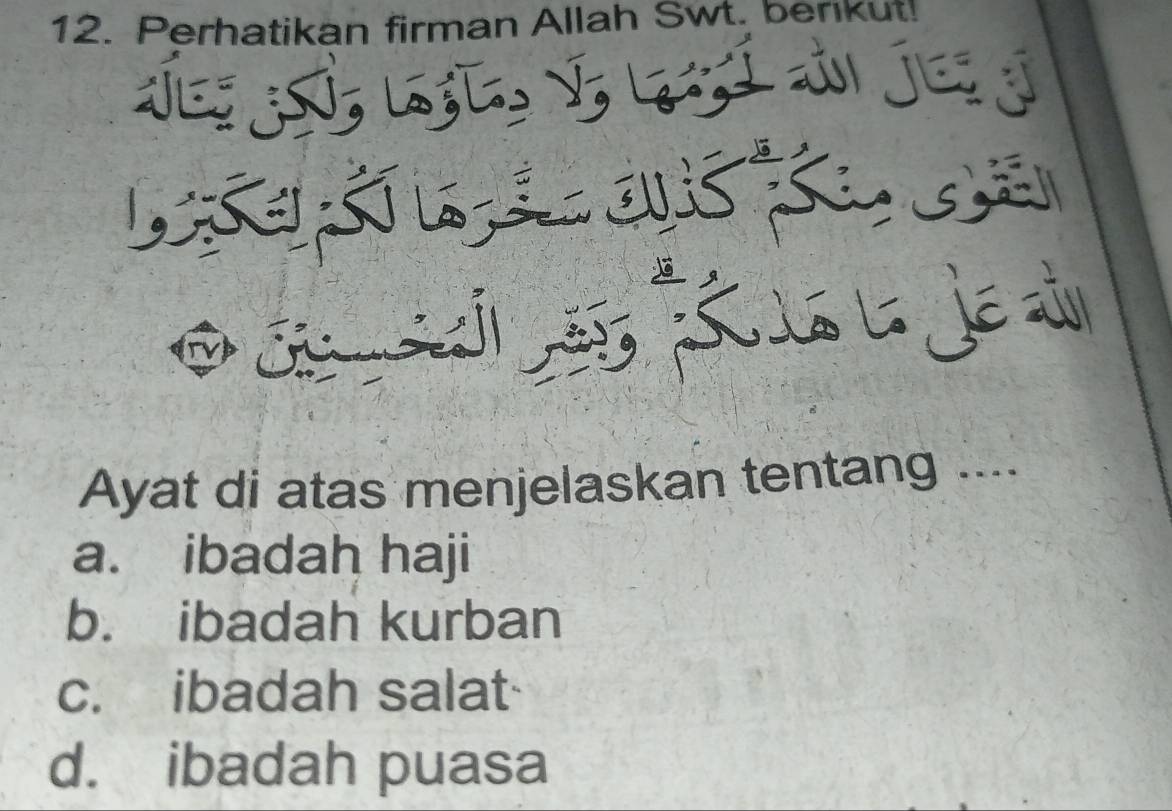 12. Perhatikan firman Allah Swt. berikut!
لَنْ يَّنَالَ اللّٰهَ لُحُوْمُهَا وَلَا دِمَاۤؤُهَا وَلٰكِنْ يَّنَالُهُ
التَّقْوٰى مِنْكُمْۗ كَذٰلِكَ سَخَّرَهَا لَكُمْ لِتُكَبِّرُوا
اللّٰهَ عَلٰى مَا هَدٰىكُمْۗ وَبَشِّرِ الْمُحْسِنِيْنَ ﴿٣٧﴾
Ayat di atas menjelaskan tentang ....
a. ibadah haji
b. ibadah kurban
c. ibadah salat
d. ibadah puasa